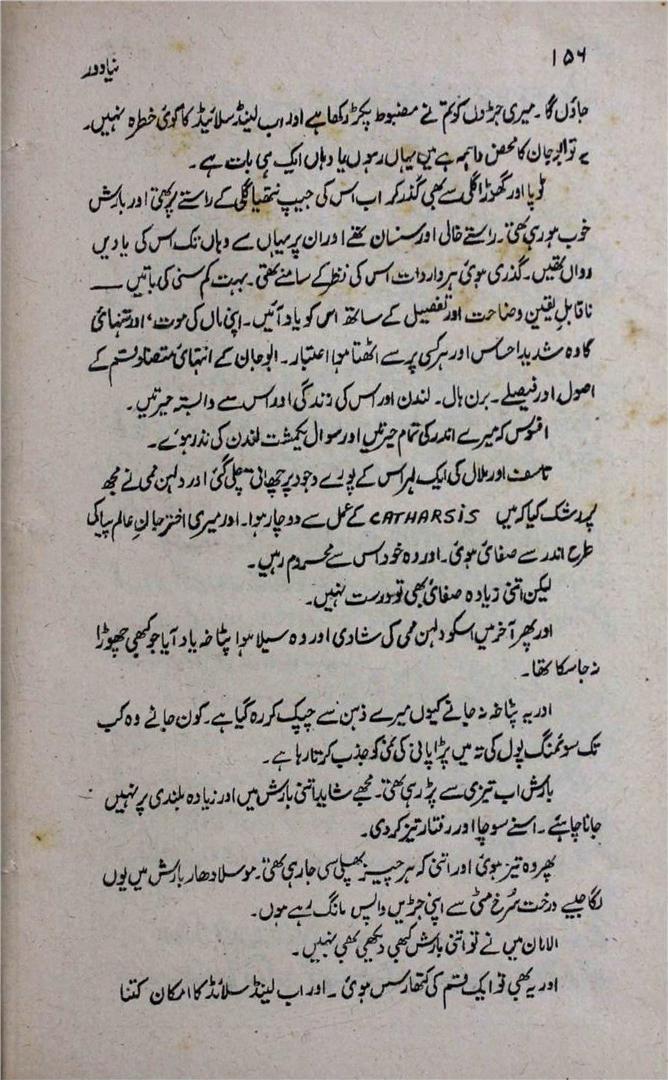 ۱۵۶
نیا دور
جاؤں گا۔ میری جڑوں کو تم نے مضبوط پکڑ رکھا ہے اور اب لینڈ سلائیڈ کا کوئی خطرہ نہیں۔
یہ تو ابو جان کا محض واہمہ ہے میں یہاں رہوں یا وہاں ایک ہی بات ہے۔
ٹوپا اور گھوڑا گلی سے بھی گذر کر اب اس کی جیپ نتھیا گلی کے راستے پر تھی اور بارش
خوب ہو رہی تھی۔ راستے خالی اور سنسان تھے اور ان پر یہاں سے وہاں تک اس کی یادیں
رواں تھیں۔ گذری ہوئی ہر واردات اس کی نظر کے سامنے تھی۔ بہت کم سنی کی باتیں ——
ناقابلِ یقین وضاحت اور تفصیل کے ساتھ اس کو یاد آئیں۔ اپنی ماں کی موت، اور تنہائی
کا وہ شدید احساس اور ہر کسی پر سے اٹھتا ہوا اعتبار۔ ابو جان کے انتہائی متضاد قسم کے
اصول اور فیصلے۔ برن ہال۔ لندن اور اس کی زندگی اور اس سے وابستہ حیرتیں۔
افسوس کہ میرے اندر کی تمام حیرتیں اور سوال یکمشت لندن کی نذر ہوئے۔
تاسف اور ملال کی ایک لہر اس کے پورے وجود پر چھاتی چلی گئی اور دلہن ممی نے مجھ
پر رشک کیا کہ میں CATHARSIS کے عمل سے دوچار ہوا۔ اور میری اختر جانِ عالم پیا کی
طرح اندر سے صفائی ہوئی۔ اور وہ خود اس سے محروم رہیں۔
لیکن اتنی زیادہ صفائی بھی تو درست نہیں۔
اور پھر آخر میں اسکو دلہن ممی کی شادی اور وہ سیلا ہوا پٹاخہ یاد آیا جو کبھی چھوڑا
نہ جا سکا تھا۔
اور یہ پٹاخہ نہ جانے کیوں میرے ذہن سے چپک کر رہ گیا ہے۔ کون جانے وہ کب
تک سوئمنگ پول کی تہ میں پڑا پانی کی نمی کو جذب کرتا رہا ہے۔
بارش اب تیزی سے پڑ رہی تھی۔ مجھے شاید اتنی بارش میں اور زیادہ بلندی پر نہیں
جانا چاہئے۔ اسنے سوچا اور رفتار تیز کر دی۔
پھر وہ تیز ہوئی اور اتنی کہ ہر چیز پھیلی سی جا رہی تھی۔ موسلا دھار بارش میں یوں
لگا جیسے درخت سُرخ مٹی سے اپنی جڑیں واپس مانگ رہے ہوں۔
الامان میں نے تو اتنی بارش کبھی دیکھی تھی نہیں۔
اور یہ بھی تو ایک قسم کی کتھارسس ہوئی۔ اور اب لینڈ سلائڈ کا امکان کتنا